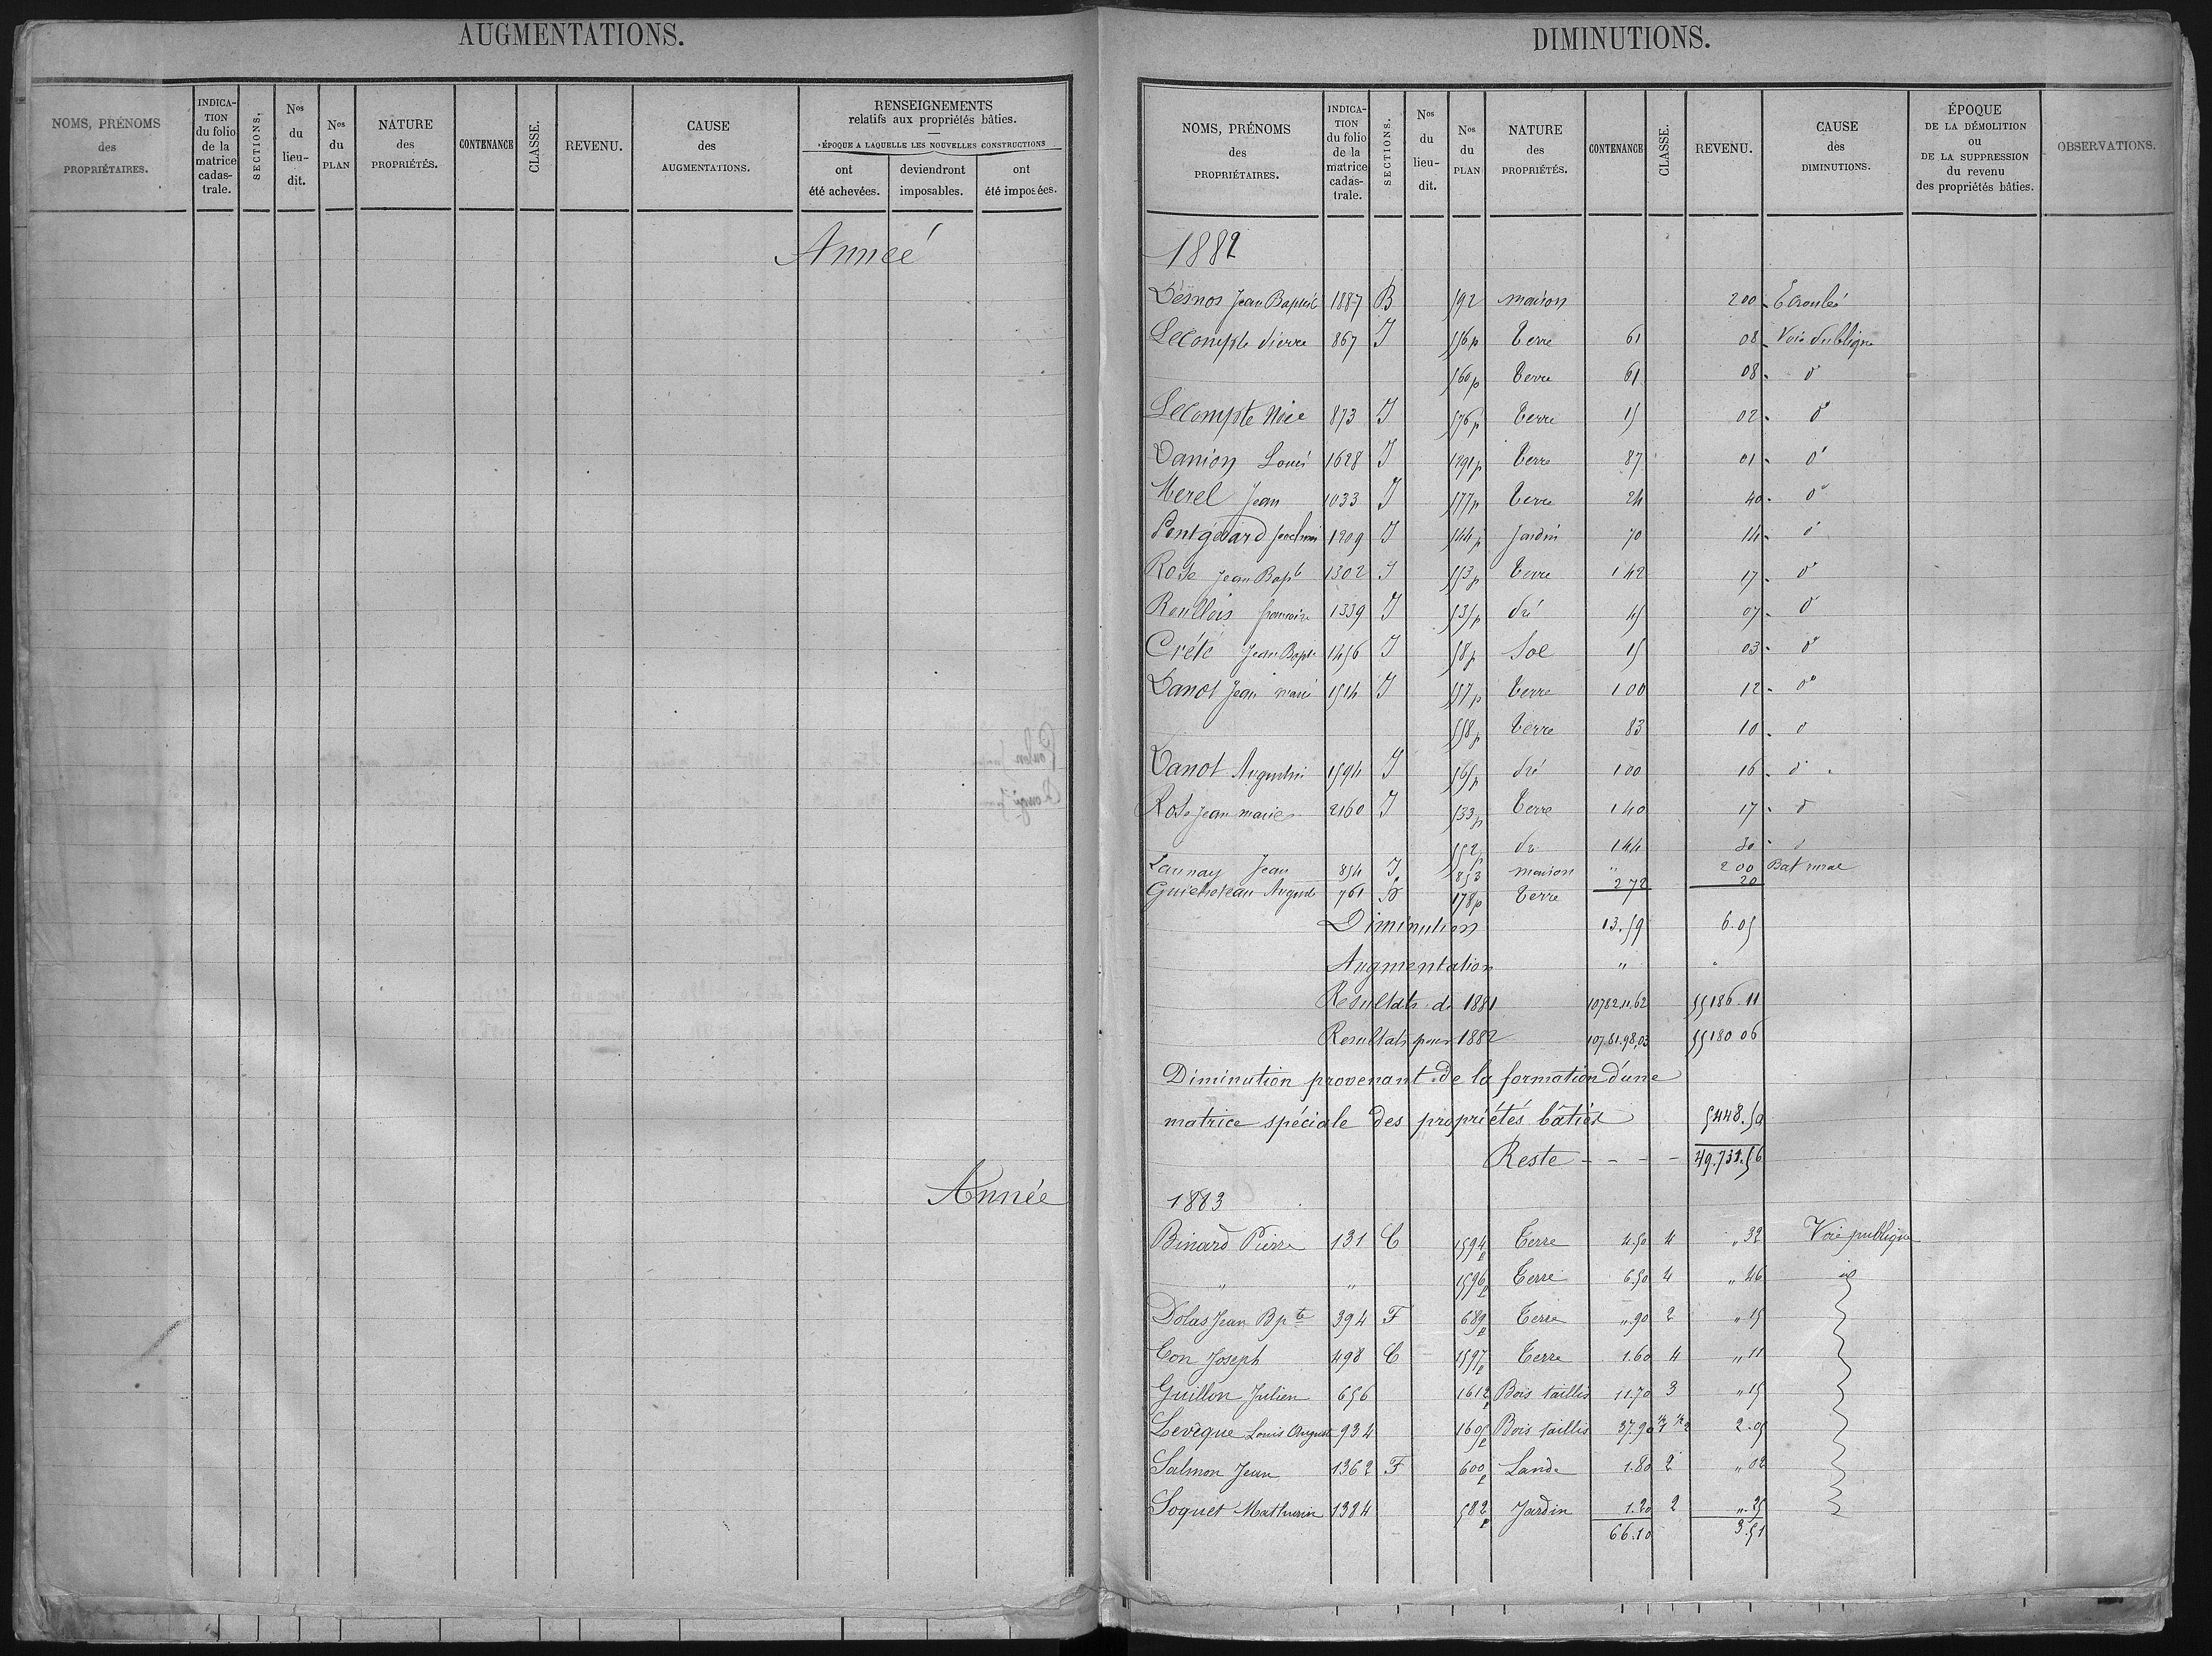 AUGMENTATIONS.
NOMS, PRÉNOMS des PROPRIÉTAIRES.
INDICA-TION du folio de la matrice cadas-trale.
SECTIONS.
Nos du lieu-dit.
Nos du PLAN
NATURE des PROPRIÉTÉS.
CONTENANCE
CLASSE.
REVENU.
CAUSE des AUGMENTATIONS.
RENSEIGNEMENTS relatifs aux propriétés bâties.
ÉPOQUE A LAQUELLE LES NOUVELLES CONSTRUCTIONS
ont été achevées.
deviendront imposables.
ont été imposées.
Année
Année
DIMINUTIONS.
NOMS, PRÉNOMS des PROPRIÉTAIRES.
INDICA-TION du folio de la matrice cadas-trale.
SECTIONS.
Nos du lieu-dit.
Nos du PLAN
NATURE des PROPRIÉTÉS.
CONTENANCE
CLASSE.
REVENU.
CAUSE des DIMINUTIONS.
ÉPOQUE DE LA DÉMOLITION OU DE LA SUPPRESSION du revenu des propriétés bâties.
OBSERVATIONS.
1882
Desnos Jean Baptiste 1887 B 592 maison 200 Ecroulée
Lecompte Pierre 867 I 556p terre 61 08 Voie Publique
560p terre 61 08 do
Lecompte 873 I 576p terre 15 02 do
Danion Louis 1628 I 1291p terre 87 01 do
Merel Jean 1033 I 577p terre 24 40 do
Pontgérard 1209 I 544p Jardin 70 14 do
Rose Jean Bapte 1302 I 553p terre 142 17 do
Roullois 1339 I 535p Pré 45 07 do
Crété Jean Bapte 1456 I 58p Sol 15 03 do
Danot Jean marie 1514 I 557p terre 100 12 do
558p terre 83 10 do
Danot Augustin 1594 I 565p Pré 100 16 do
Rose Jean marie 2160 I 533p terre 140 17 do
552p do 144 30 do
Launay Jean 854 I 853 maison " 200 Bat rural
Guicheteau 761 178p terre 272 20
Diminution 13.59 6.05
Augmentation " "
Resultats de 1881 10782.11.62 55186.11
Resultats pour 1882 10781.98.03 55180 06
Diminution provenant de la formation d'une
matrice spéciale des propriétés bâties 5448.50
Reste - - - - 49.731.56
1883
Binard Pierre 131 C 1594p Terre 4.50 4 " 32 Voie publique
" " 1596p Terre 6.50 4 " 46 id
Dolas Jean Bpte 394 F 689p Terre ".90 2 " 15
Eon Joseph 498 C 1597p Terre 1.60 4 " 11
Guillon Julien 656 1612p Bois taillis 11.70 3 " 15
Levèque Louis August 934 1605p Bois taillis 37.90 2.05
Salmon Jean 1362 F 600p Lande 1.80 2 " 02
Soquet Mathurin 1384 582p Jardin 1.20 2 ". 25
66.10 3.51